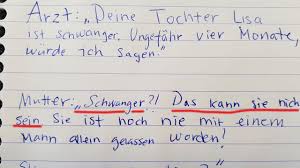 Arzt: „Deine Tochter Lisa
ist schwanger. Ungefähr vier Monate,
würde ich sagen."
Mutter: „Schwanger?! Das kann sie nich
sein Sie ist noch nie mit einem
Mann allein gelassen worden!